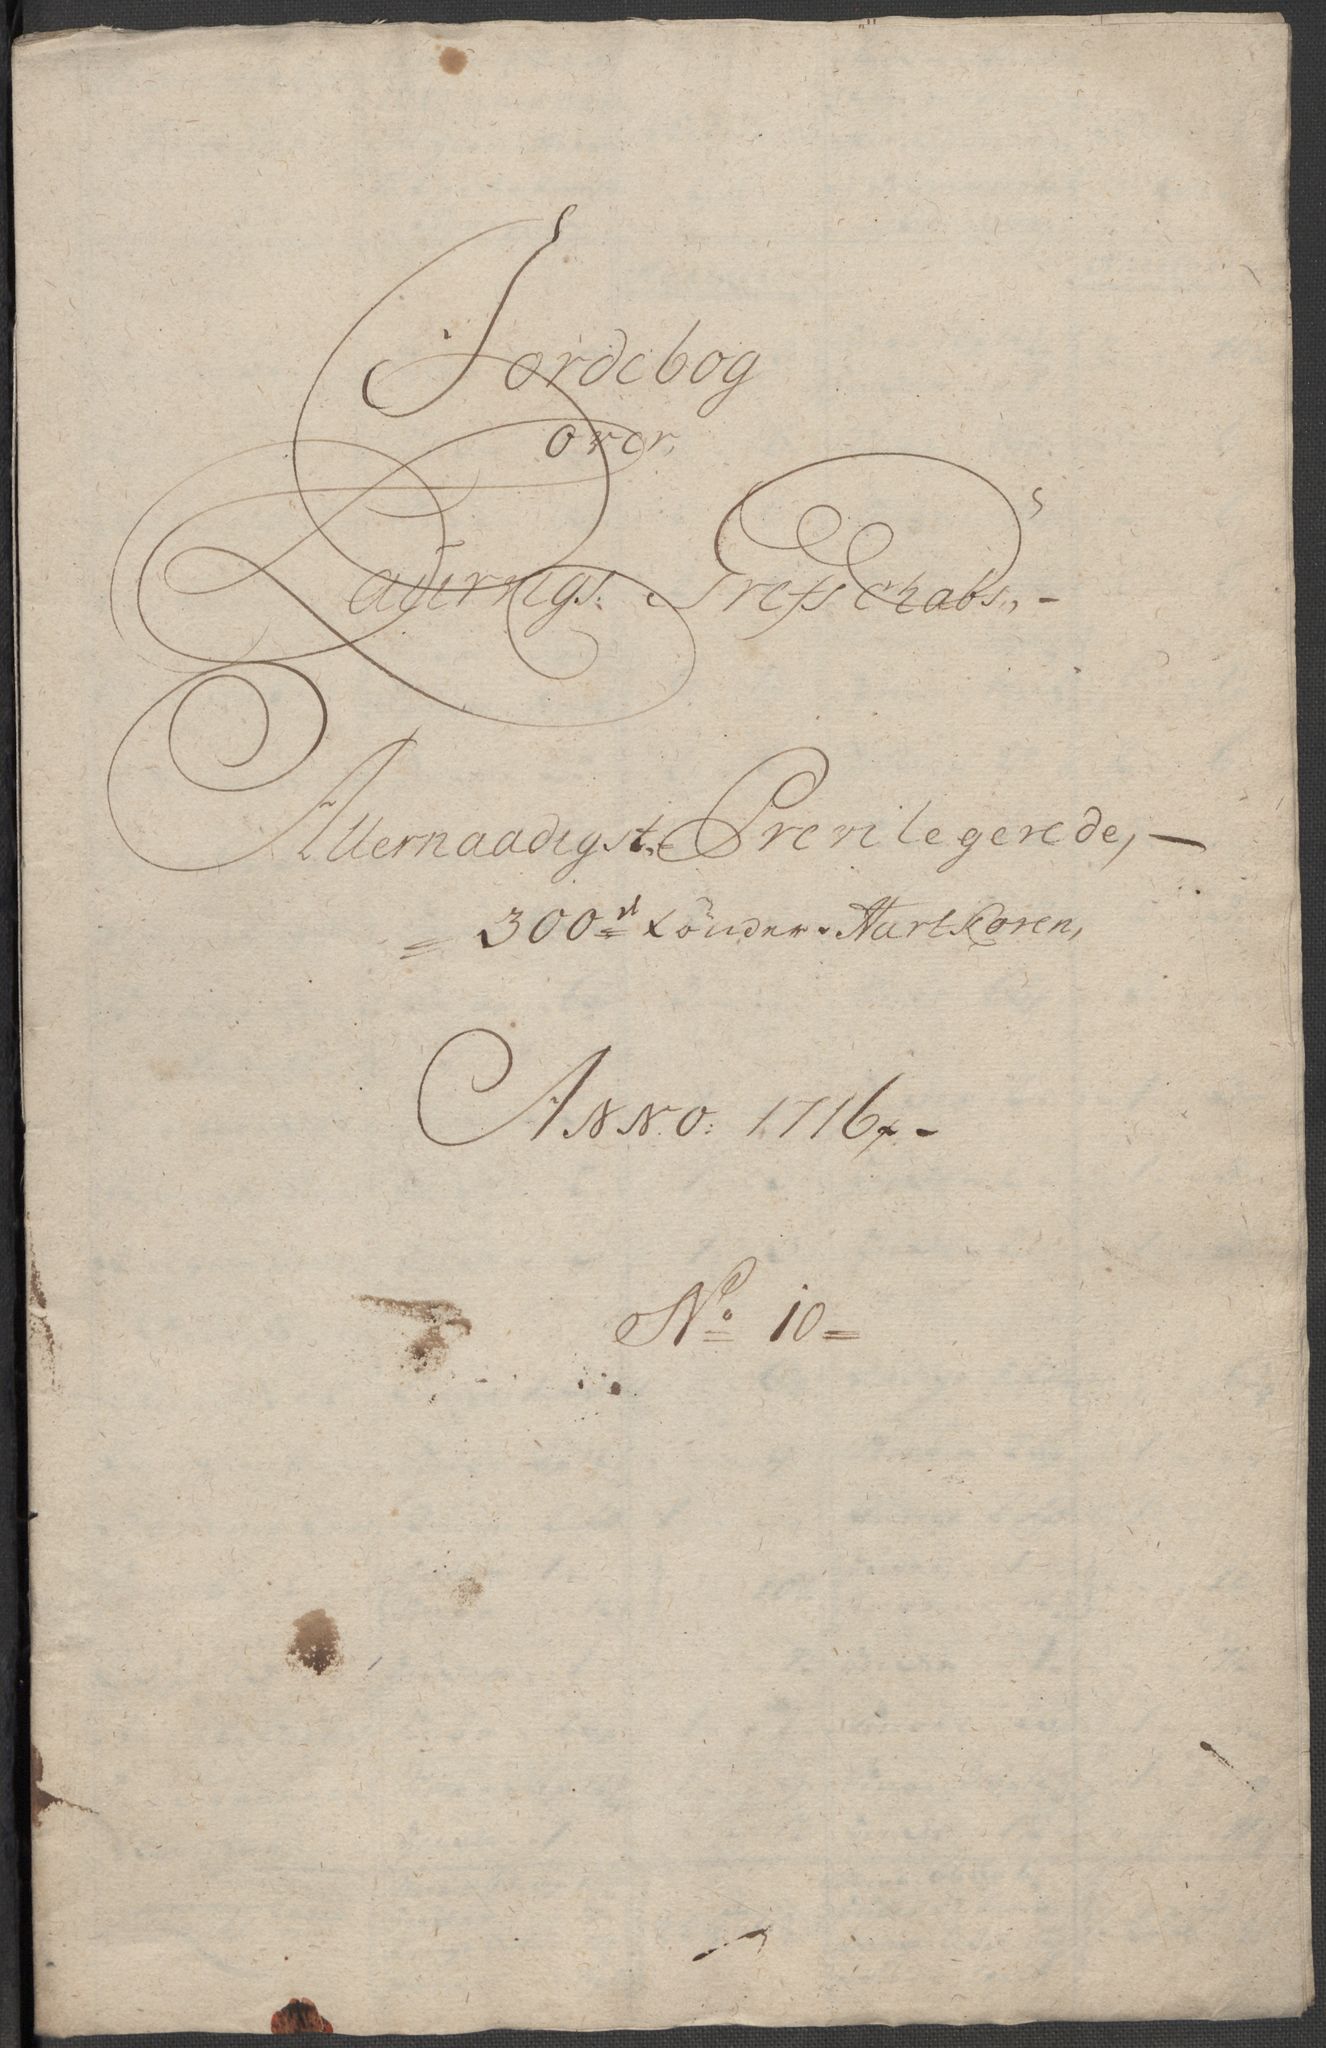 Jordebog
over
Laurvigs: Grefschabs,-
Allernaadigst Previlegerede,-
= 300de tönder Hartkoren,
Anno: 1716,-
No 10=